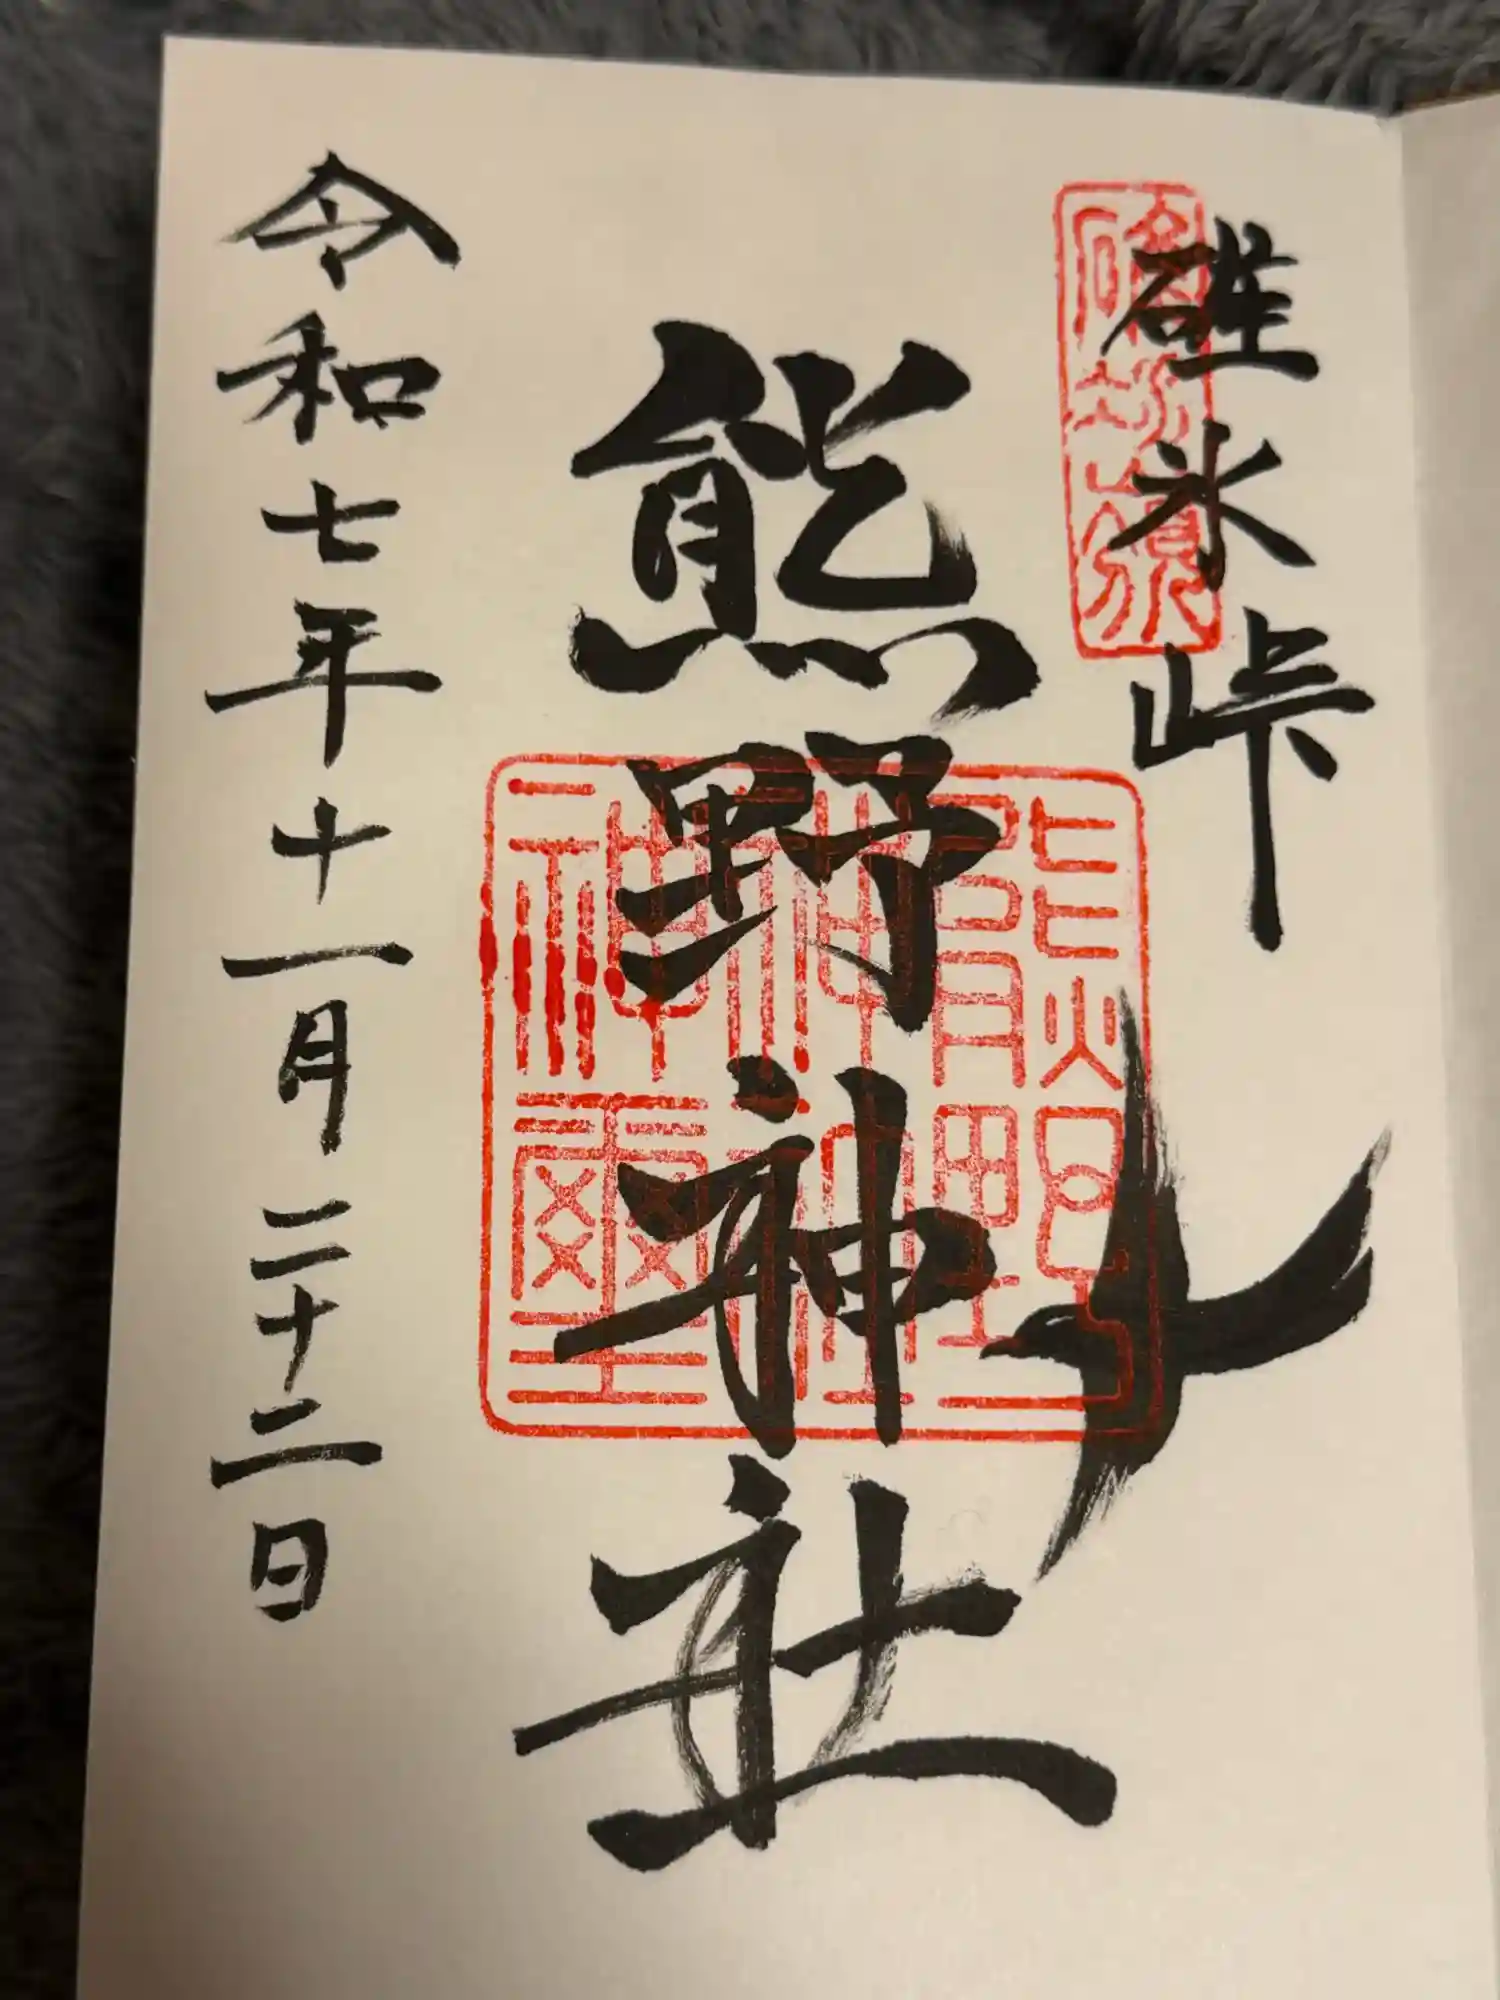 碓氷峠
碓氷嶺
熊野神社
熊野
神社
神璽
令和七年十一月二十二日